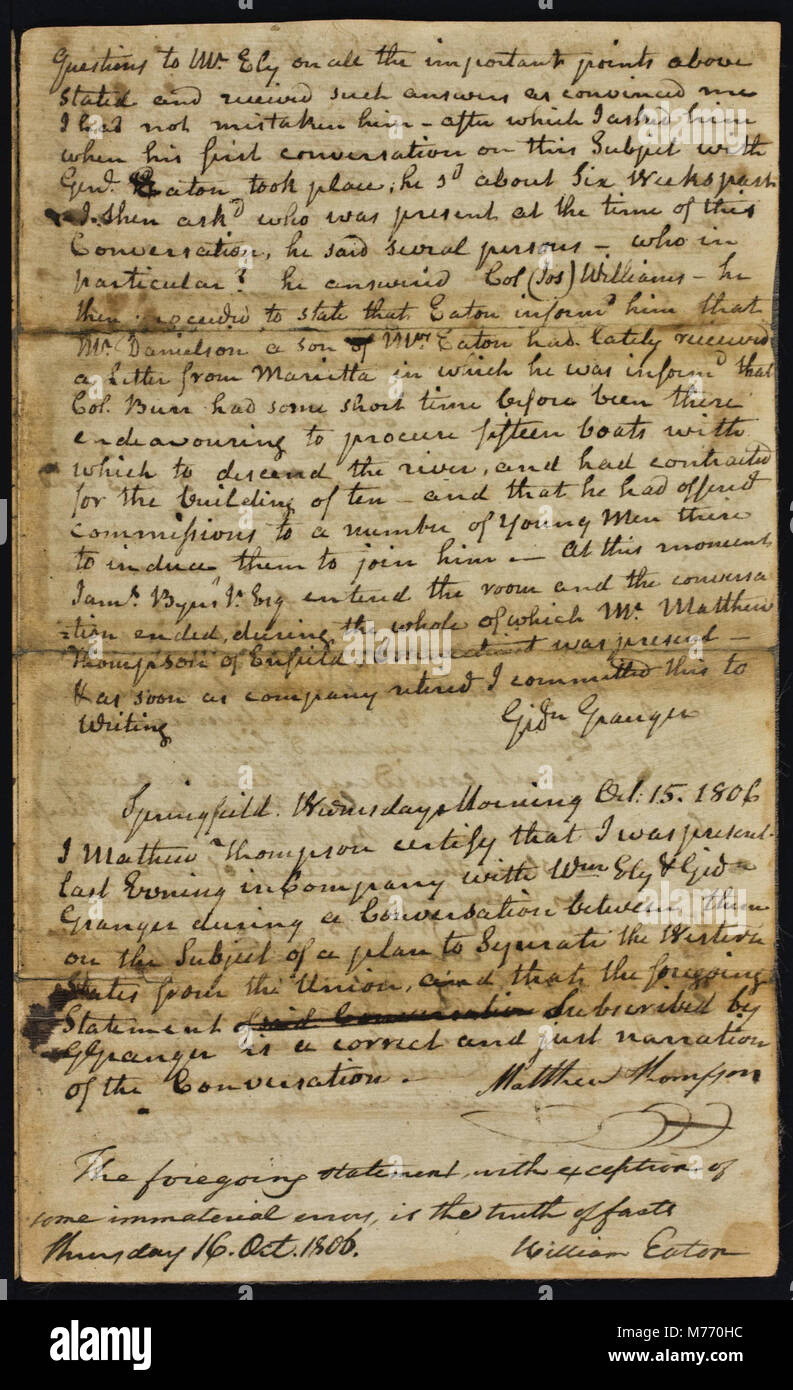 Questions to Mr. Ely on all the important points above
stated and received such answers as convinced me
I had not mistaken him – after which I asked him
when his first conversation on this Subject with
Genl. Eaton took place, he sd about Six Weeks past
I then askd who was present at the time of this
Conversation, he said several persons – who in
particular? he answered Col (Jos) Williams – he
then proceeded to state that Eaton informd him that
Mr. Danielson a son of Mrs Eaton had lately received
a letter from Marietta in which he was informd that
Col. Burr had some short time before been there
endeavouring to procure fifteen boats with
which to descend the river, and had contracted
for the building of ten – and that he had offered
commissions to a number of Young Men there
to induce them to join him – At this moment
Esq entered the room and the conversa
=tion ended, during the whole of which Mr. Matthew
Thompson of Enfield Connecticut was present –
& as soon as company retired I committed this to
Writing
Gidn Granger
Springfield. Wednesday Morning Oct. 15. 1806
I Mathew Thompson certify that I was present
last Evening in Company with Wm Ely & Gidn
Granger during a Conversation between them
on the Subject of a plan to Seperate the Western
States from the Union, and that the foregoing
Statement of said Conversation Subscribed by
GGranger is a correct and just narration
of the Conversation. –
Matthew Thompson
The foregoing statement, with exception of
some immaterial errors, is the truth of facts
Thursday 16. Oct. 1806.
William Eaton
alamy
alamy
alamy
alamy
Image ID: M770HC
www.alamy.com